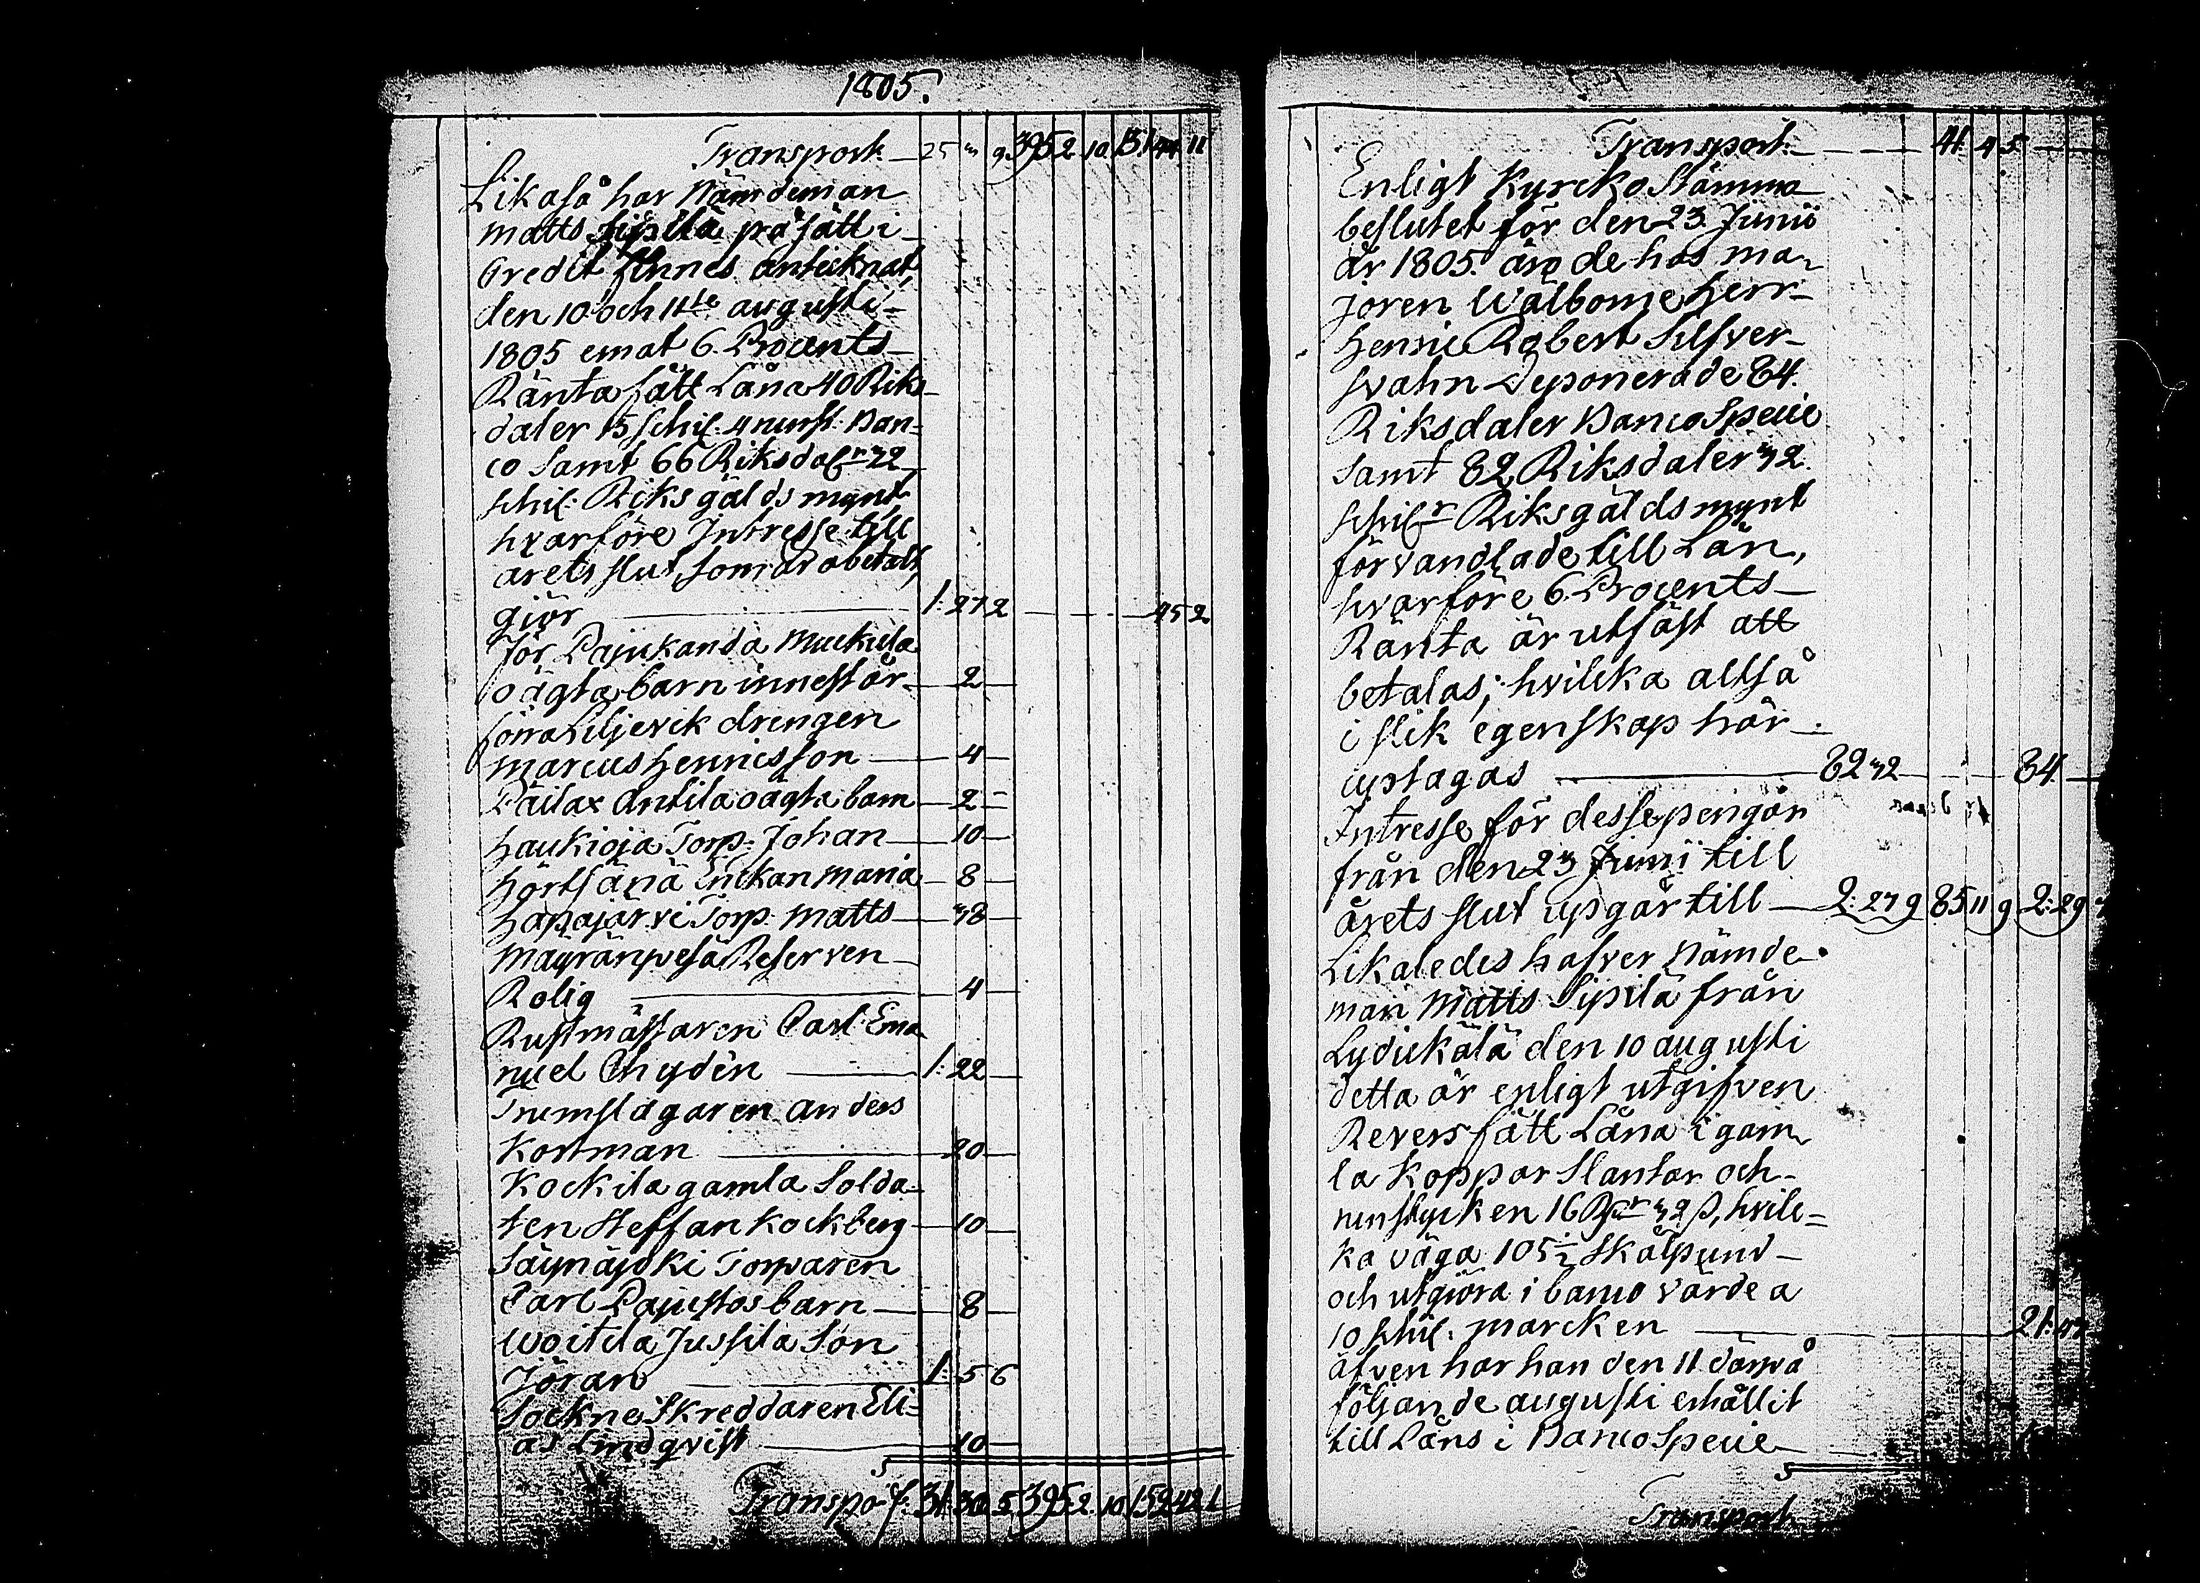 1805.
Transport. — 25 " 9 395 2. 10. 151 44. 11
Likaså har Nämdeman
Matts Sipilä på sätt i
Credit finnes antecknat,
den 10 och 11te augusti
1805 emot 6. Procents
Ränta fått Låna 40 Riks-
daler 15 schil: 4 runst: Ban=
co samt 66 Riksdalr 32
schil: Riksgälds mynt
hvarföre Intresse till
årets slut, som är obetalt,
giör — 1: 27 2 — 45 2
För Pajukanda Muckula
oägta barn innestår — 2 —
föra Liljevik drengen
Marcus Hennicsson — 4 —
Päilax Antila oägta barn — 2 —
Haukioja Torp: Johan — 10 —
Hörtsänä Enckan Maria — 8 —
Hanajärvi Torp. Matts — 38 —
Mäyränpesä Reserven
Rolig — 4 —
Rustmästaren Carl Ema
nuel Chydén — 1: 22 —
Trumslagaren Anders
Kortman — 20 —
Kockila gamla Solda
ten Steffan Kockberg — 10 —
Säynäjoki Torparen
Carl Pajustos barn — 8 —
Woitila Jussila Son
Jöran — 1: 5 6
Sockne Skreddaren Eli=
as Lindqvist — 10 —
Transpo rt: 31. 30. 5, 395 2. 10. 152 42 1
Transport. — 41. 4 5
Enligt Kyrcko Stämmo
beslutet för den 23 Junii
år 1805. äro de hos ma
joren Wälborne Herr
Henric Robert Silfver-
svahn Deponerade 84.
Riksdaler Banco Specie
samt 82 Riksdaler 32
schilr Riksgälds mynt
förvandlade till Lån,
hvarföre 6. Procents
Ränta är utfäst att
betalas; hvilcka altså
i slik egenskap här
uptagas — 82 32 — 84. —
Intresse för desse pengar
från den 23 Junii till
årets slut upgår till — 2: 27 9 85 11 9 2: 29
Likaledes hafver Nämde
man Matts Sipilä från
Lydickälä den 10 augusti
detta år enligt utgifven
Revers fått Låna i gam
la Koppar Slantar och
runstycken 16 Rdr 32 ß, hvilc=
ka väga 105 1/2 Skålpund
och utgiöra i banco värde a
10 schil. marcken — 21: 47
äfven har han den 11. därpå
följande augusti erhållit
till Låns i Banco Specie
Transport.